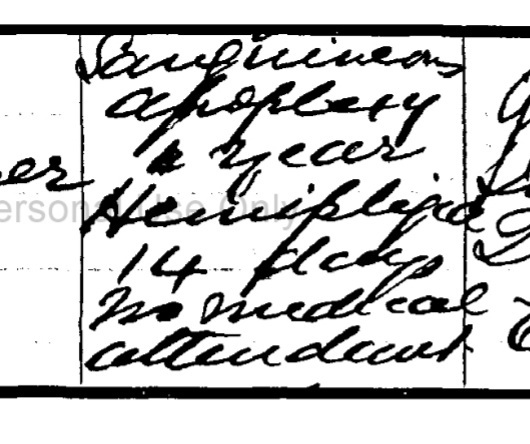 Sanguineous
apoplexy
1 year
Hemiplegia
14 days
no medical
attendant
er
ersonal Use Only